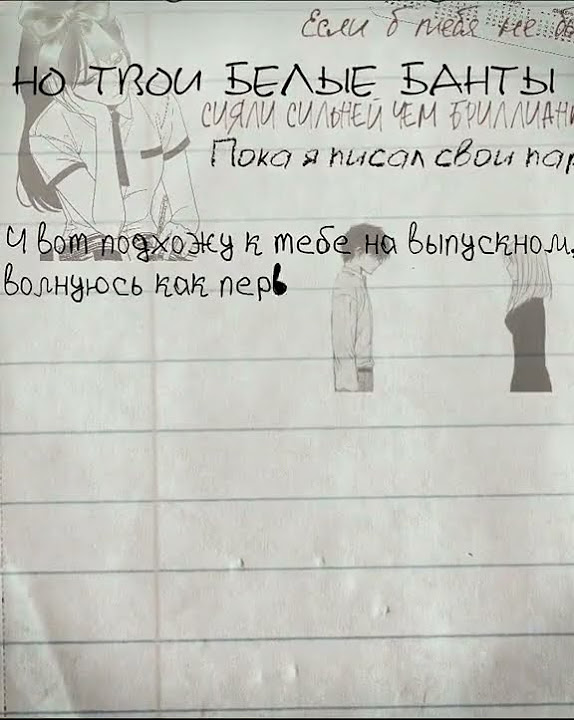 Если б тебя не
НО ТВОИ БЕЛЫЕ БАНТЫ
СИЯЛИ СИЛЬНЕЙ ЧЕМ БРИЛЛИАН
Пока я писал свои пар
И вот подхожу к тебе на выпускном,
волнуюсь как перв